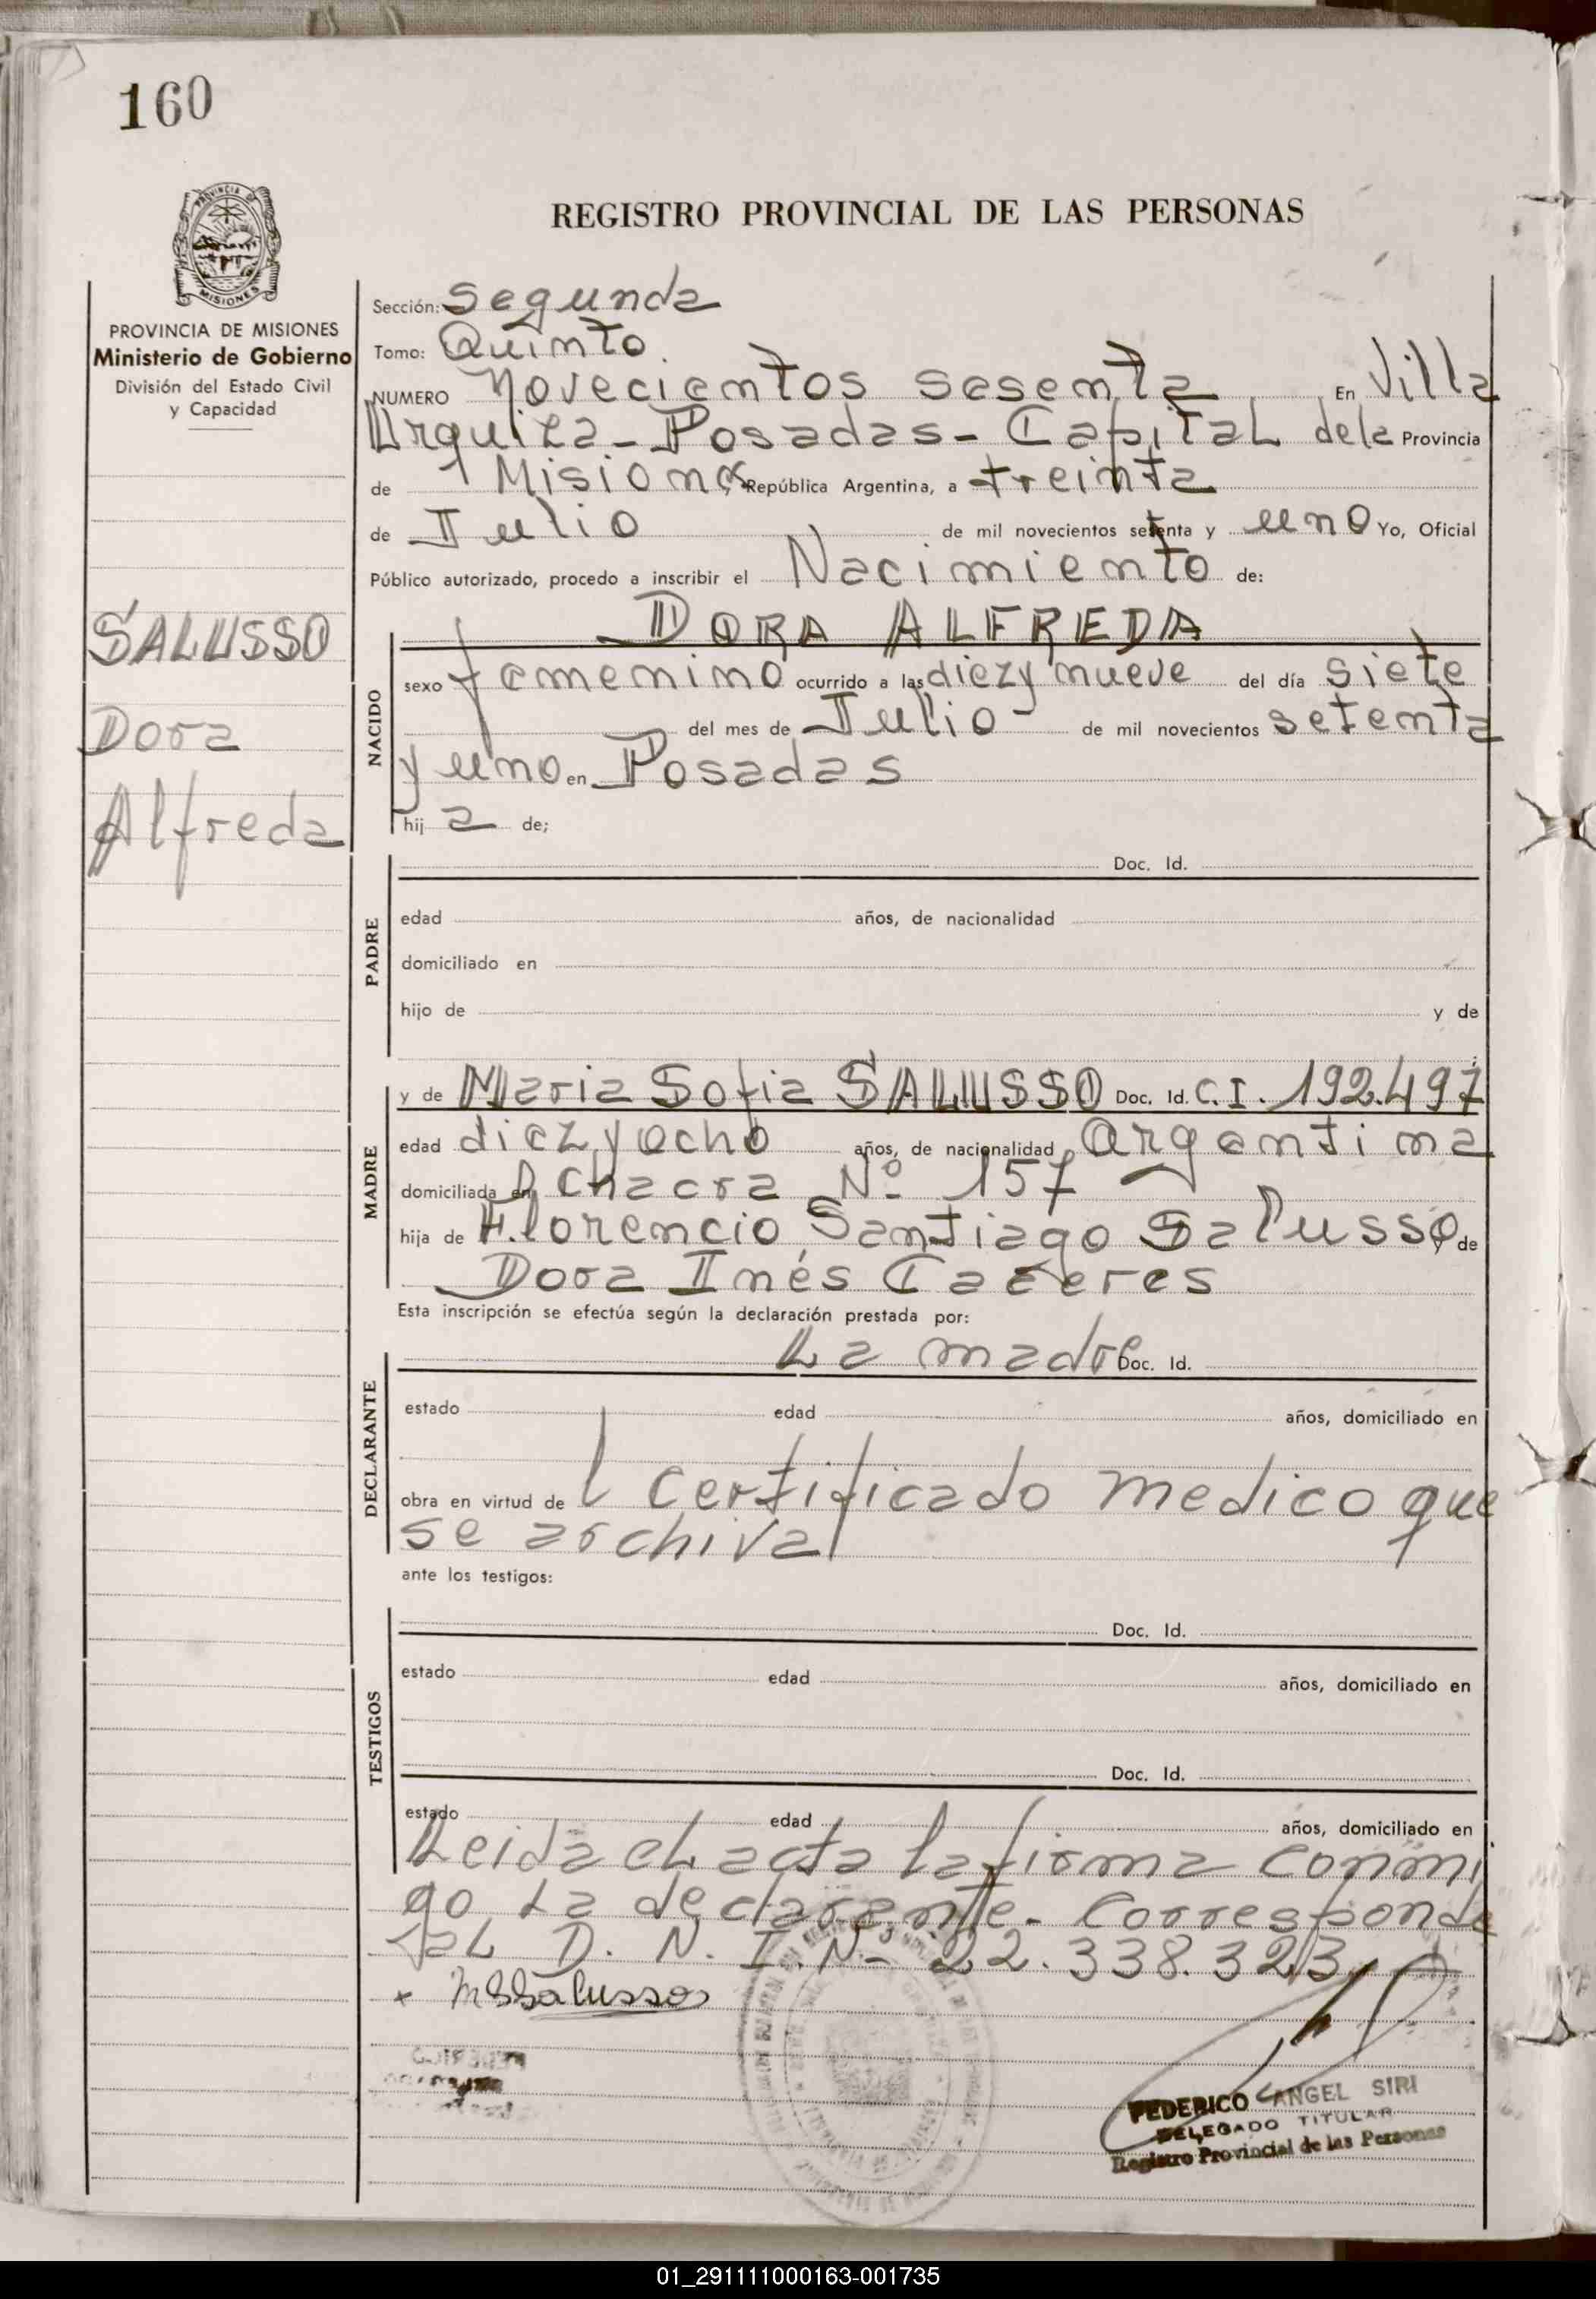 160
PROVINCIA DE
MISIONES
REGISTRO PROVINCIAL DE LAS PERSONAS
PROVINCIA DE MISIONES
Ministerio de Gobierno
División del Estado Civil
y Capacidad
SALUSSO
Dora
Alfreda
Sección: Segunda
Tomo: Quinto.
NUMERO Novecientos sesenta En Villa
Urquiza - Posadas - Capital de la Provincia
de Misiones República Argentina, a treinta
de Julio de mil novecientos setenta y uno Yo, Oficial
Público autorizado, procedo a inscribir el Nacimiento de:
DORA ALFREDA
NACIDO
sexo femenino ocurrido a las diez y nueve del día siete
del mes de Julio - de mil novecientos setenta
y uno en Posadas
hij a de;
PADRE
Doc. Id.
edad años, de nacionalidad
domiciliado en
hijo de y de
MADRE
y de Maria Sofia SALUSSO Doc. Id. C.I. 192.497
edad diez y ocho años, de nacionalidad Argentina
domiciliada en Chacra Nº 157
hija de Florencio Santiago Salusso y de
Dora Inés Caceres
Esta inscripción se efectúa según la declaración prestada por:
DECLARANTE
La madre Doc. Id.
estado edad años, domiciliado en
obra en virtud de l certificado medico que
se archiva
ante los testigos:
TESTIGOS
Doc. Id.
estado edad años, domiciliado en
Doc. Id.
estado edad años, domiciliado en
Leida el acta la firma conmi
go la declarante. Corresponde
al D. N. I. Nº 22.338.323
x MSSalusso
FEDERICO ANGEL SIRI
DELEGADO TITULAR
Registro Provincial de las Personas
01_291111000163-001735